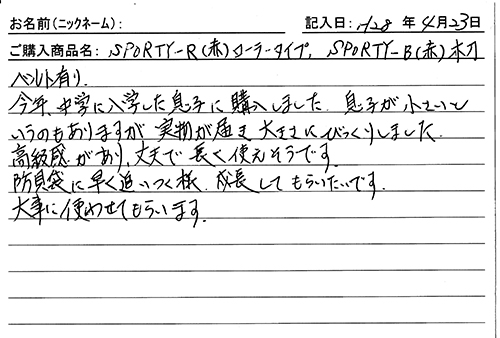 お名前(ニックネーム): 記入日: H28 年 4月23日
ご購入商品名: SPORTY-R(赤)ローラータイプ, SPORTY-B(赤)木刀
ベルト有り.
今年、中学に入学した息子に購入しました. 息子が小さいと
いうのもありますが実物が届き大きさにびっくりしました.
高級感があり、丈夫で長く使えそうです.
防具袋に早く追いつく様、成長してもらいたいです.
大事に使わせてもらいます.